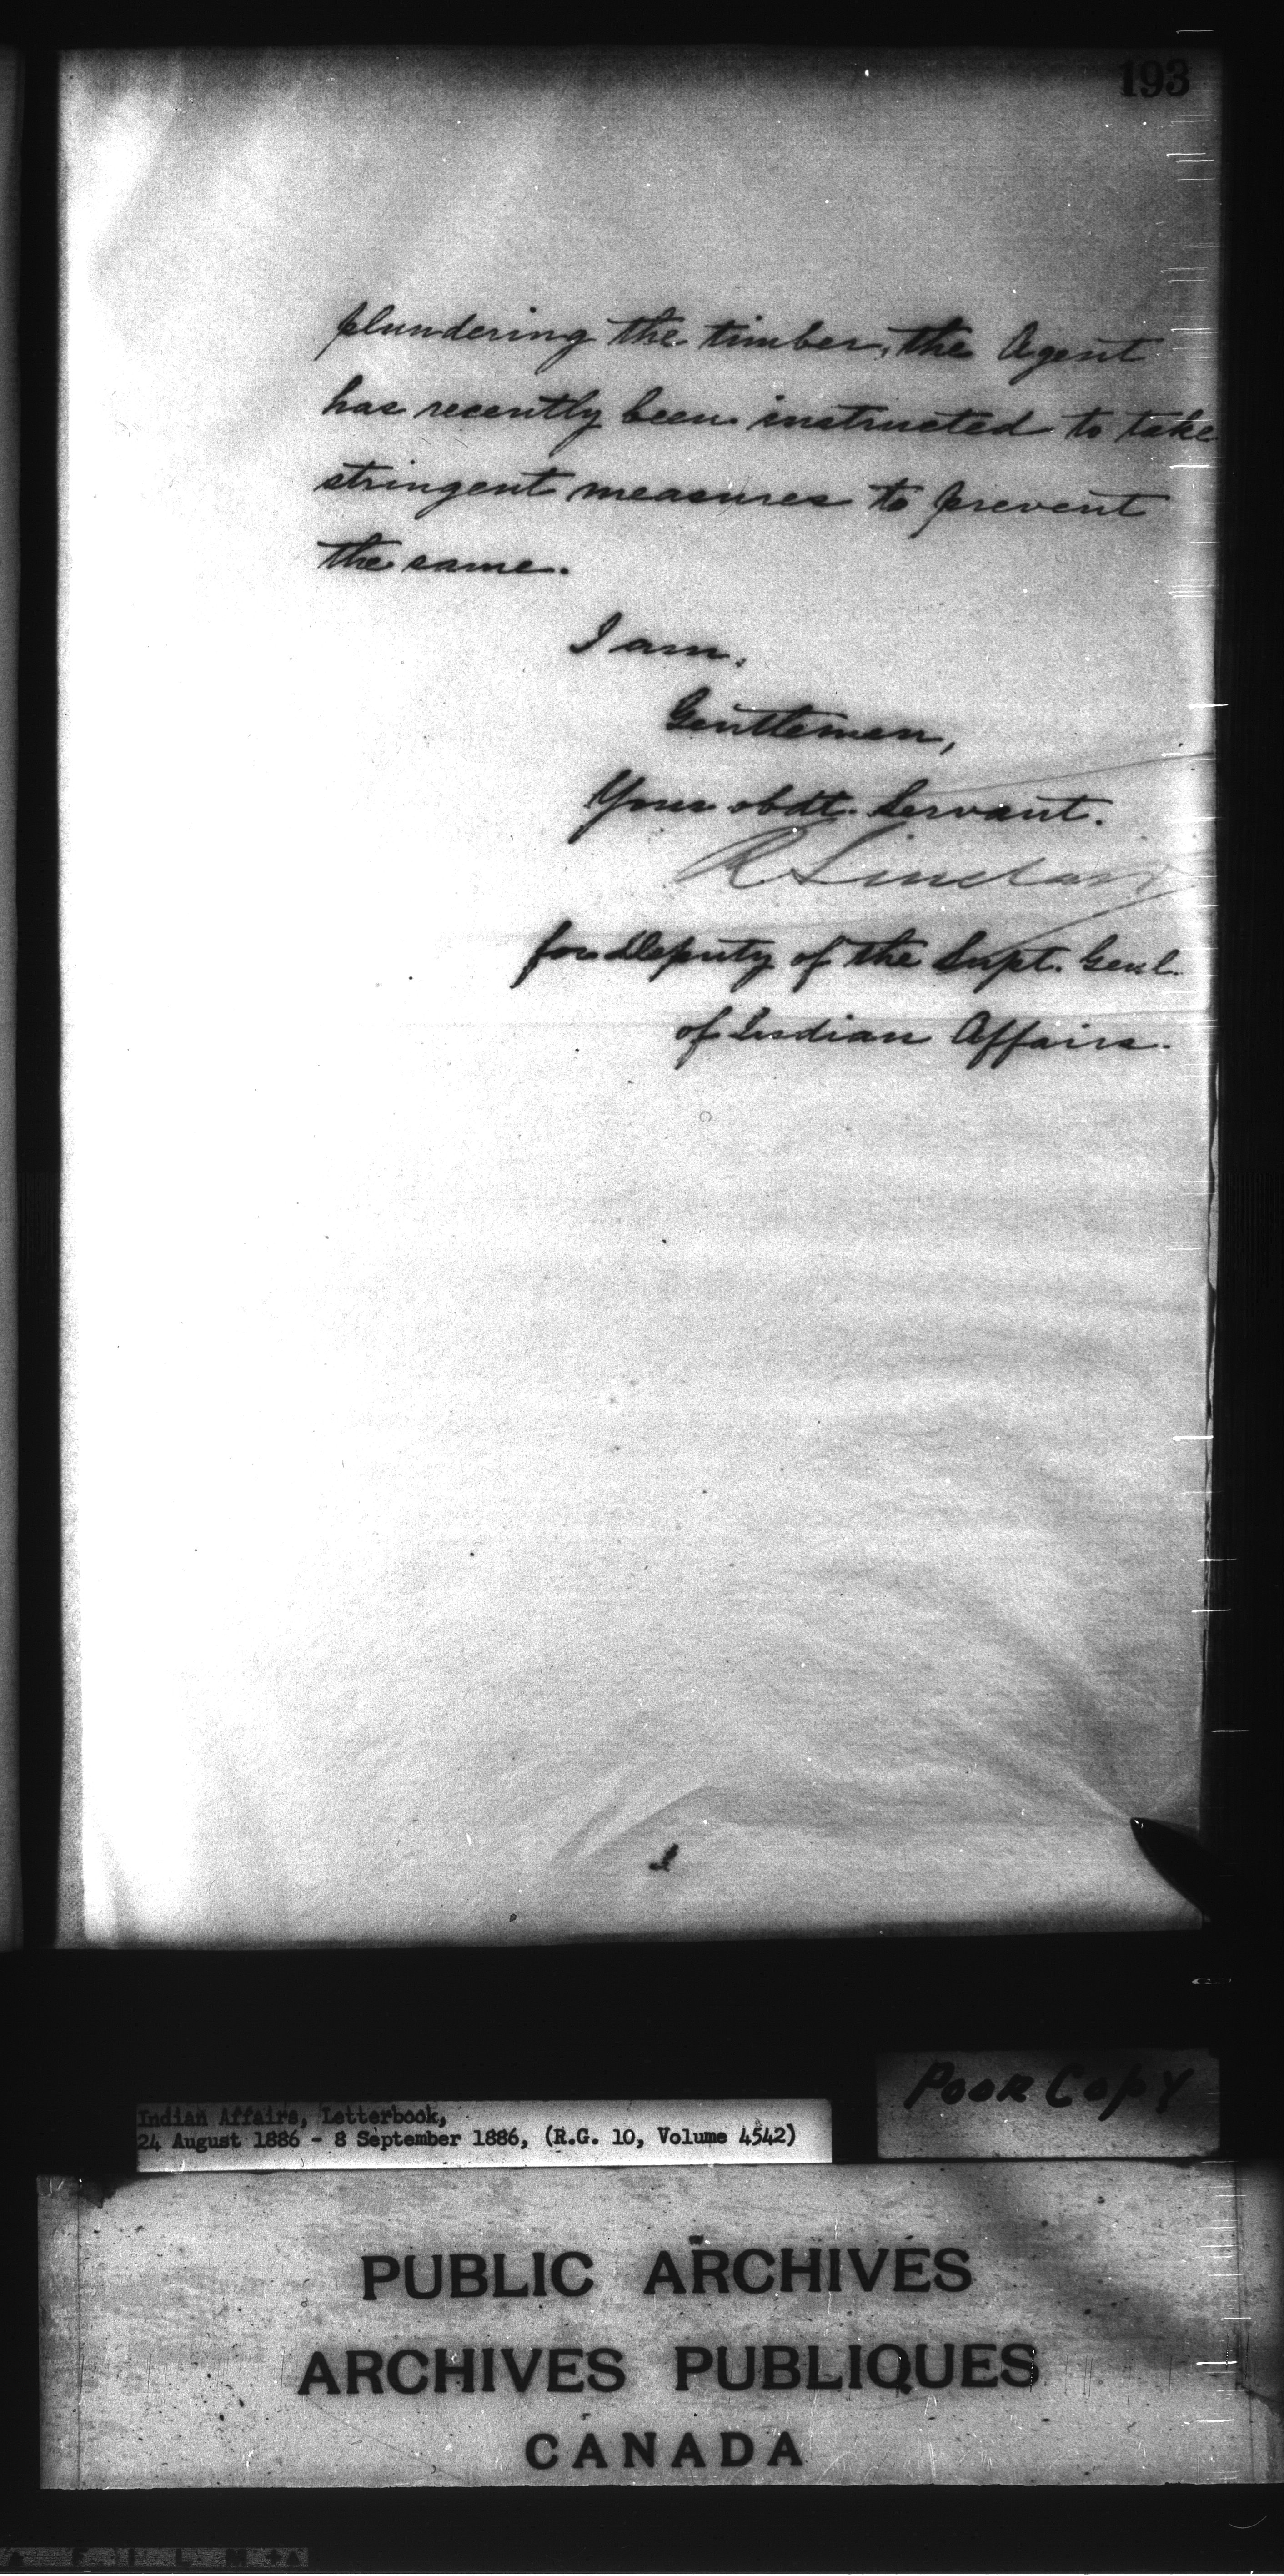 193
plundering the timber, the Agent
has recently been instructed to take
stringent measures to prevent
the same.
I am,
Gentlemen,
Your obdt. Servant.
R Sinclair
for Deputy of the Supt. Genl.
of Indian Affairs.
Poor Copy
Indian Affairs, Letterbook,
24 August 1886 - 8 September 1886, (R.G. 10, Volume 4542)
PUBLIC ARCHIVES
ARCHIVES PUBLIQUES
CANADA